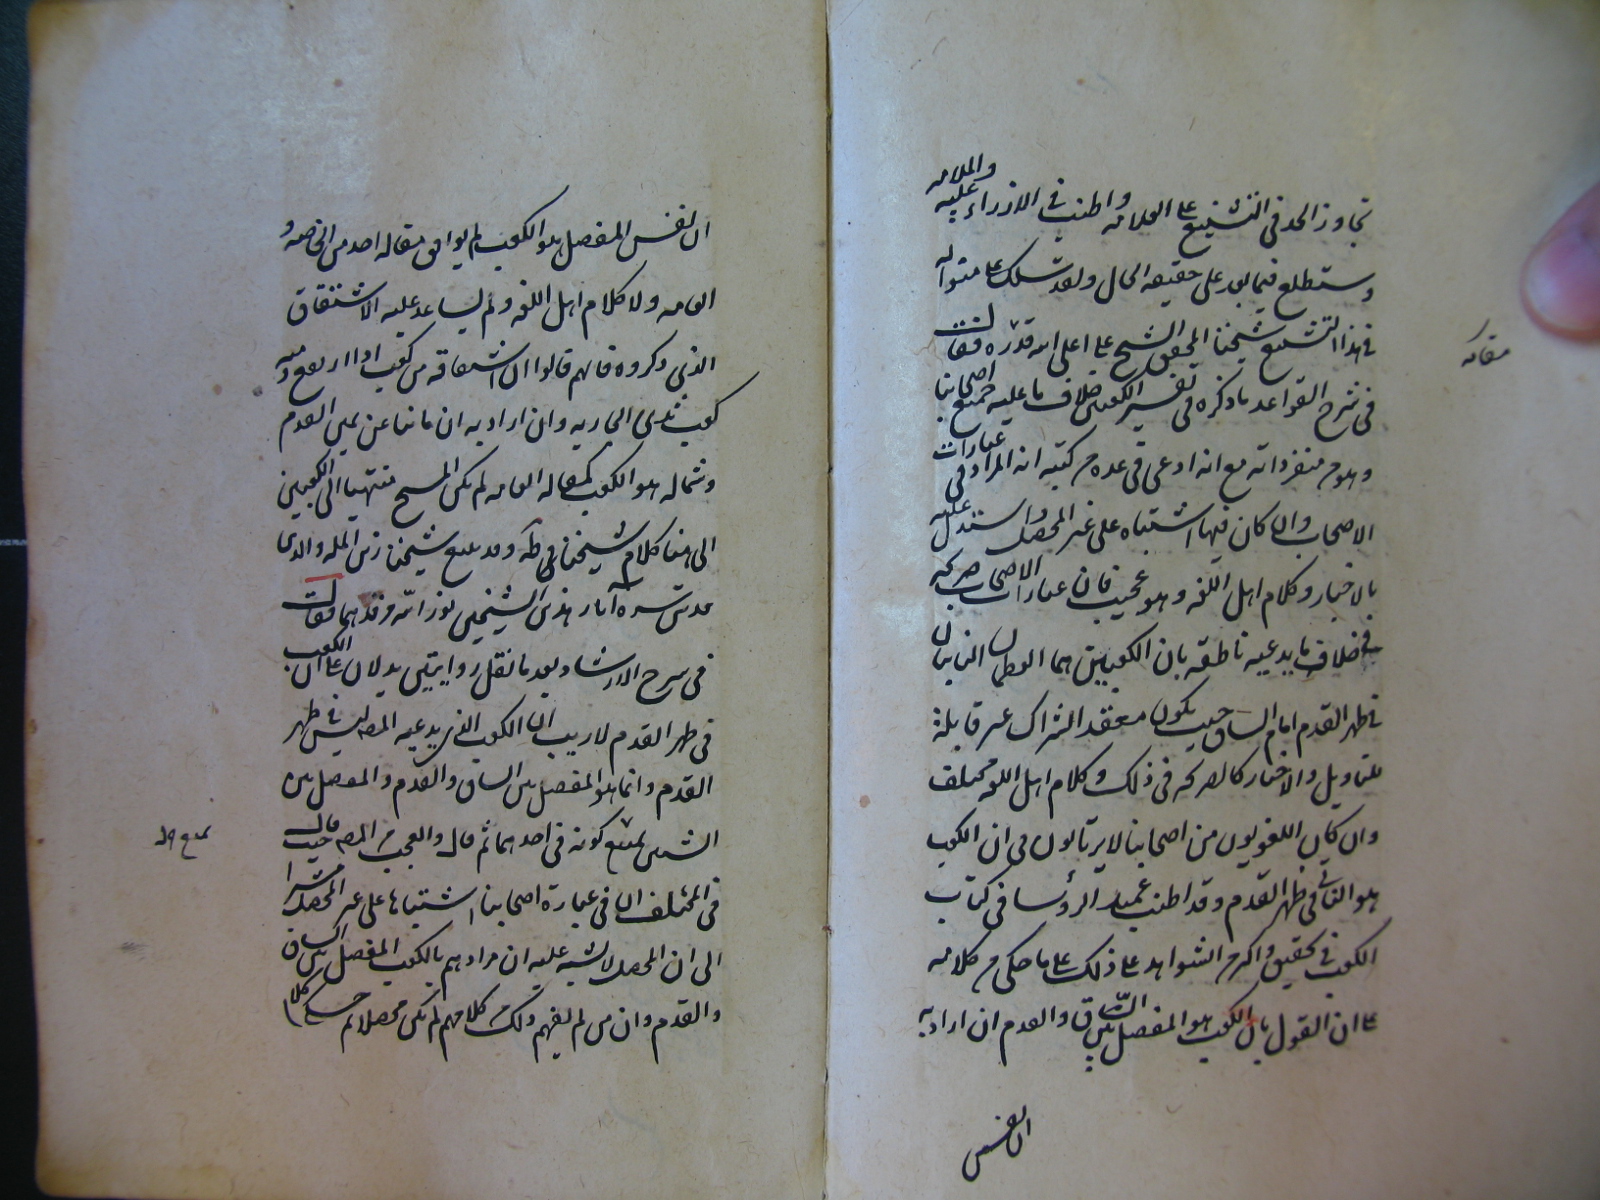 تجاوز الحد في التشنيع على العلامه واطنب في الازراء عليه والملامه
وستطلع فيما بعد على حقيقه الحال ولقد سلك على منواله
في هذا التشنيع شيخنا المحقق الشيخ على اعلى الله قدره فقال
في شرح القواعد ما ذكره في تفسير الكعبين خلاف ما عليه جميع اصحابنا
وهو من منفرداته مع انه ادعى في عده من كتبه انه المراد في عبارات
الاصحاب وان كان فيها اشتباه على غير المحصل واستدل عليه
بالاخبار وكلام اهل اللغه وهو عجيب فان عبارات الاصحاب صريحه
في خلاف ما يدعيه ناطقه بان الكعبين هما العظمان الناتيان
في ظهر القدم امام الساق حيث يكون معقد الشراك غير قابلة
للتاويل والاخبار كالصريحه في ذلك وكلام اهل اللغه مختلف
وان كان اللغويون من اصحابنا لا يرتابون في ان الكعب
هو الناتي في ظهر القدم وقد اطنب عميد الرؤسا في كتاب
الكعب في تحقيق واكثر من الشواهد على ذلك على ما حكي من كلامه
على ان القول بان الكعب هو المفصل بين الساق والقدم ان اراد به
ان نفس
مقاله
ان نفس المفصل هو الكعب لم يوافق مقاله احد من الخاصه و
العامه ولا كلام اهل اللغه ولم يساعد عليه الاشتقاق
الذي ذكروه فانهم قالوا ان اشتقاقه من كعب اذا ارتفع ومنه
كعب ثدي الجاريه وان اراد به ان ما نتا عن يمين القدم
وشماله هو الكعب كمقاله العامه لم يكن المسح منتهيا الى الكعبين
الى هنا كلام شيخنا في طه وقد تبع شيخنا زين المله والدين
قدس سره آثار هذين الشيخين نور الله مرقدهما فقال
في شرح الارشاد بعد ما نقل روايتين يدلان على ان الكعب
في ظهر القدم لا ريب ان الكعب الذي يدعيه المصه ليس في ظهر
القدم وانما هو المفصل بين الساق والقدم والمفصل بين
الشيئين يمتنع كونه في احدهما ثم قال والعجب من المصه حيث قال
في المختلف ان في عبارة اصحابنا اشتباها على غير المحصل مشيرا
الى ان المحصل لا يشتبه عليه ان مرادهم بالكعب المفصل بين الساق
والقدم وان من لم يفهم ذلك من كلامهم لم يكن محصلا ثم حكى كلا